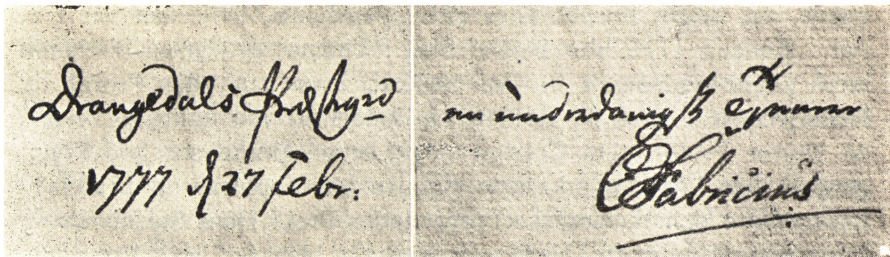 Drangedals Præstgrd
1777 d 27 Febr.
en underdanigst Tjenner
CFabricius